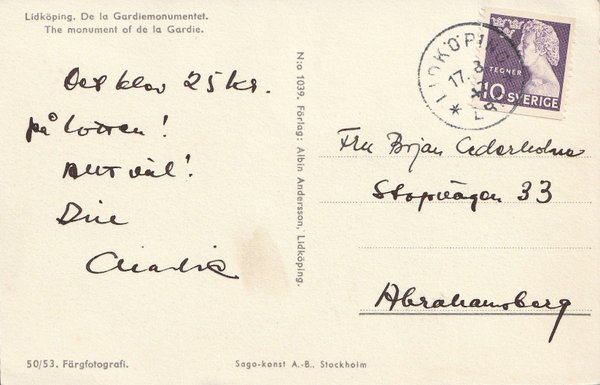 Lidköping. De la Gardiemonumentet.
The monument of de la Gardie.
Det blev 25 kr.
på lotten!
Allt väl!
Din
N:o 1039. Förlag: Albin Andersson, Lidköping.
LIDKÖPING
17. 8
TEGNÉR
10 SVERIGE
Fru Brjan Cederholm
Stopvägen 33
Abrahamsberg
50/53. Färgfotografi.
Sago-konst A.-B., Stockholm